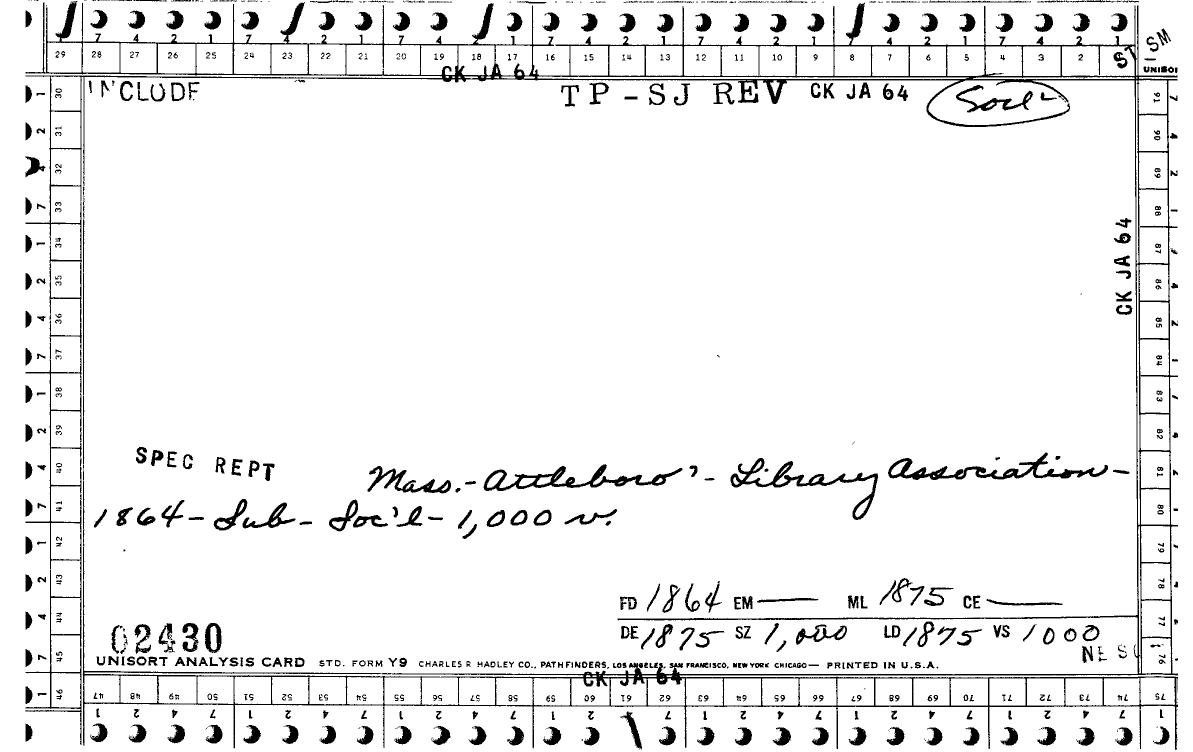 7 4 2 1 7 4 2 1 7 4 2 1 7 4 2 1 7 4 2 1 7 4 2 1 7 4 2 1
29 28 27 26 25 24 23 22 21 20 19 18 17 16 15 14 13 12 11 10 9 8 7 6 5 4 3 2 ST SM
CK JA 64 UNISOR
INCLUDE TP-SJ REV CK JA 64 Soc'l
30 31 32 33 34 35 36 37 38 39 40 41 42 43 44 45 46
91 90 89 88 87 86 85 84 83 82 81 80 79 78 77 76
CK JA 64
SPEC REPT Mass.-Attleboro'- Library Association-
1864-Sub-Soc'l-1,000 v.
FD 1864 EM — ML 1875 CE —
DE 1875 SZ 1,000 LD 1875 VS 1000
02430 NE SC
UNISORT ANALYSIS CARD STD. FORM Y9 CHARLES R HADLEY CO., PATHFINDERS, LOS ANGELES, SAN FRANCISCO, NEW YORK CHICAGO— PRINTED IN U.S.A.
CK JA 64
47 48 49 50 51 52 53 54 55 56 57 58 59 60 61 62 63 64 65 66 67 68 69 70 71 72 73 74 75
1 2 4 7 1 2 4 7 1 2 4 7 1 2 4 7 1 2 4 7 1 2 4 7 1 2 4 7 1